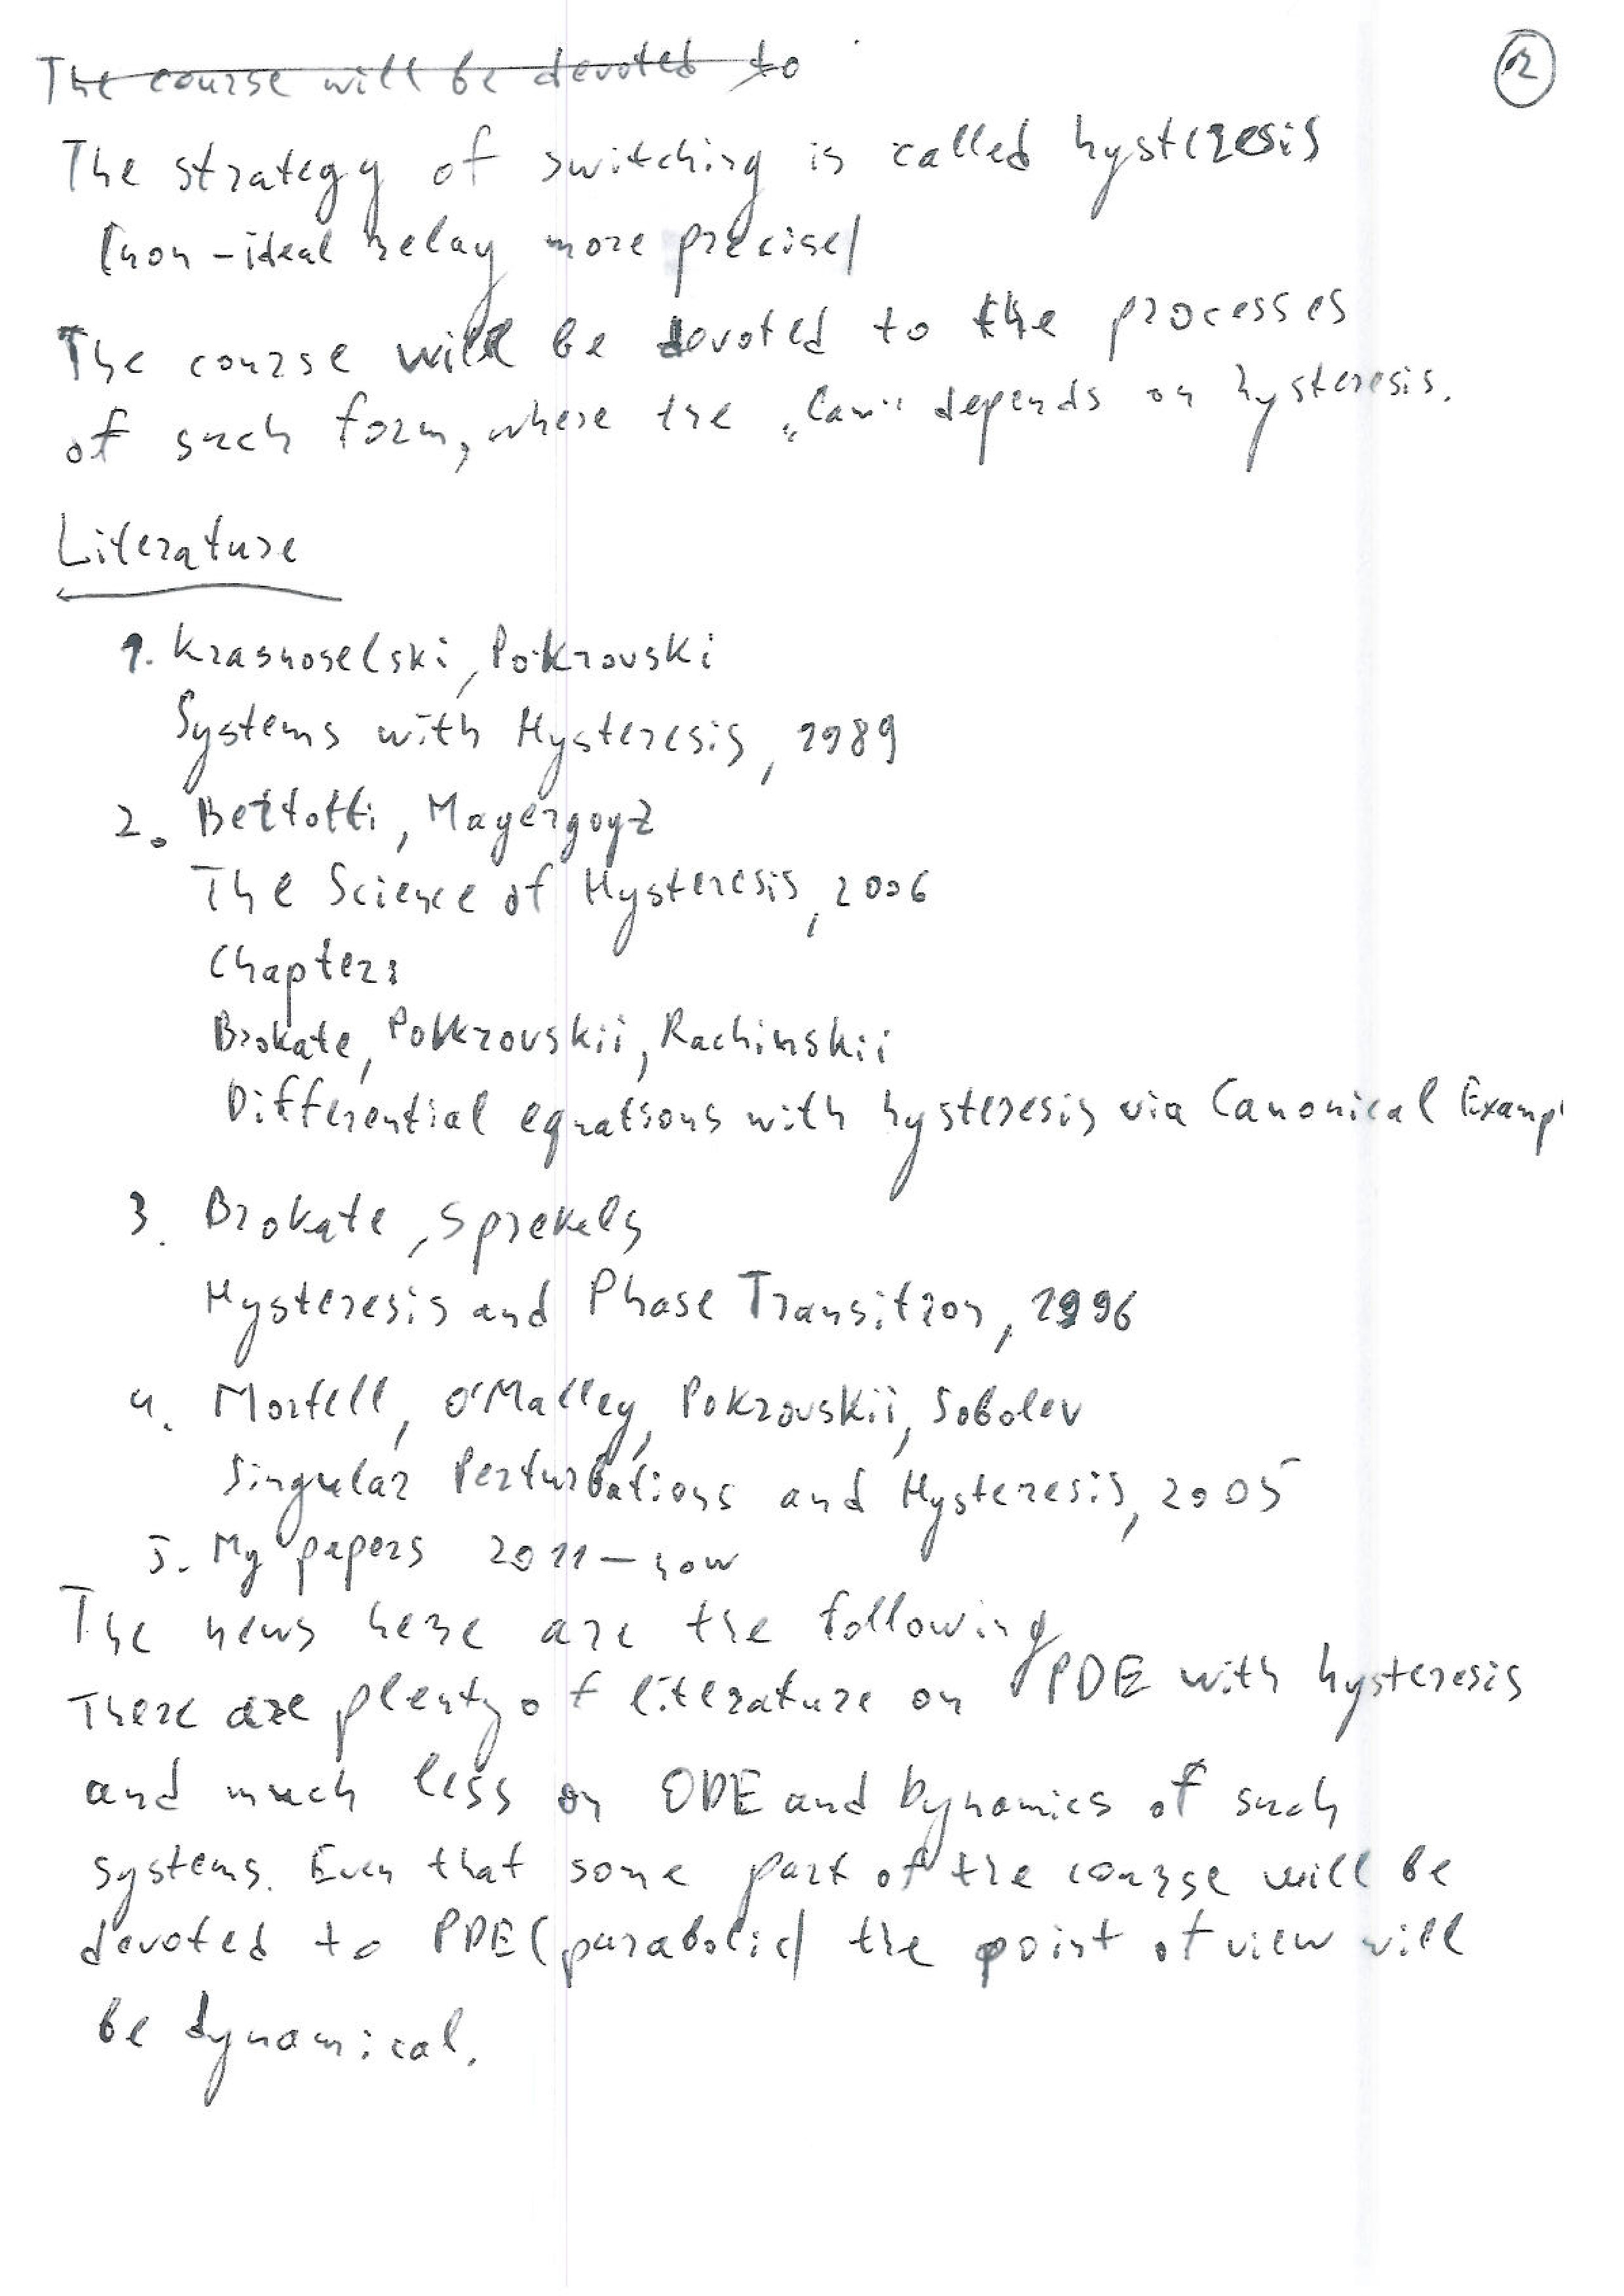 The course will be devoted to
2
The strategy of switching is called hysteresis
(non-ideal relay more precise)
The course will be devoted to the processes
of such form, where the „law" depends on hysteresis.
Literature
1. Krasnoselski, Pokrovski
Systems with Hysteresis, 1989
2. Bertotti, Mayergoyz
The Science of Hysteresis, 2006
Chapter:
Brokate, Pokrovskii, Rachinskii
Differential equations with hysteresis via Canonical Exampl
3. Brokate, Sprekels
Hysteresis and Phase Transition, 1996
4. Mortell, O'Malley, Pokrovskii, Sobolev
Singular Perturbations and Hysteresis, 2005
5. My papers 2011 – now
The news here are the following
There are plenty of literature on PDE with hysteresis
and much less on ODE and Dynamics of such
systems. Even that some part of the course will be
devoted to PDE (parabolic) the point of view will
be dynamical.